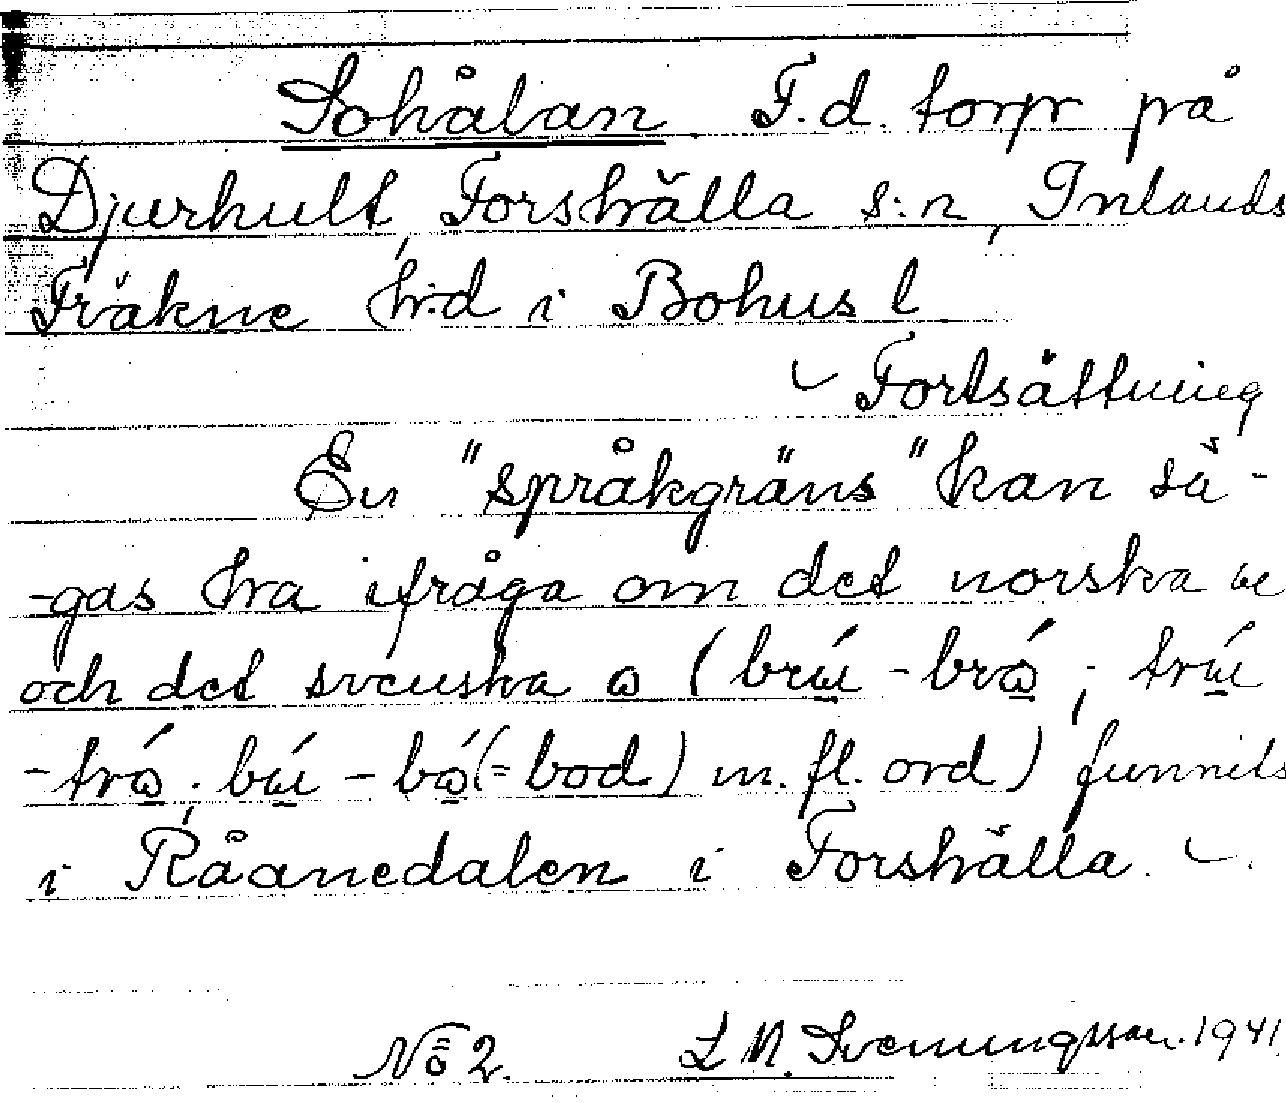 Sohålan F.d. torp på
Djurhult, Forshälla s:n, Inlands
Fräkne h:d i Bohus l
Fortsättning
En "språkgräns" kan sä-
-gas ha ifråga om det norska ɯ
och det svenska ɷ (brɯ́ - brɷ́; trɯ́
- trɷ́; bɯ́ - bɷ́ (= bod) m. fl. ord) funnits
i Råanedalen i Forshälla.
No 2. L M. Svenungsson. 1941